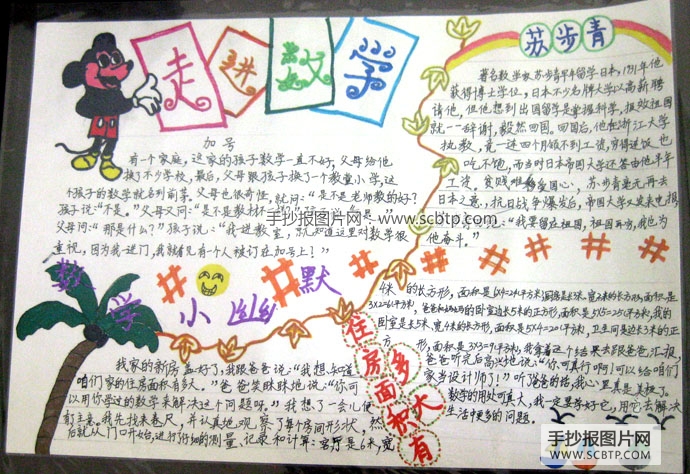 走进数学
加号
有一个家庭，这家的孩子数学一直不好，父母给他
换了不少学校，最后，父母跟孩子换了一个教堂小学，这
个孩子的数学就名列前茅。父母也很奇怪，就问：“是不是老师教的好？”
孩子说：“不是。”父母又问：“是不是教材不
父母问：“那是什么？”孩子说：“我一进教室，就知道这里对数学很
重视，因为我一进门，我就看见有一个人被订在加号上？”
苏步青
著名数学家苏步青早年留学日本，1931年他
获得博士学位，日本不少名牌大学以高薪聘
请他，但他想到出国留学是掌握科学，报效祖国
就一一辞谢，毅然回国。回国后，他在浙江大学
执教，竟一连四个月领不到工资，穷得连饭也
吃不饱，而当时日本帝国大学还答由他半年
工资。贫贱难移爱国心，苏步青毫无再去
日本之意，抗日战争爆发后，帝国大学又发来电报
“我要留在祖国，祖国再穷，我也为
他奋斗。”
数学小幽默
住房面积有多大
我家的新房盖好了，我跟爸爸说：“我想知道
咱们家的住房面积有多大。”爸爸笑眯眯地说：“你可
以用你学过的数学来解决这个问题呀。”我想了一会儿便
有了主意。我先找来卷尺，并认真地观察了每个房间形状，然
后就从门口开始，进行仔细的测量、记录和计算：客厅是6米，宽
4米的长方形，面积是6×4=24平方米，厨房是长3米，宽2米的长方形，面积是
3×2=6平方米，爸爸和妈妈的卧室是边长5米的正方形，面积是5×5=25平方米，我的
卧室是长5米，宽4米的长方形，面积是5×4=20平方米，卫生间是边长3米的正方
形，面积是3×3=9平方米，我拿着这个结果去跟爸爸汇报，
爸爸听完后高兴地说：“你可真行啊！可以给咱们
家当设计师了！”听了爸爸的话，我心里真是美极了。
数学的用处可真大，我一定要学好它，用它去解决
生活中更多的问题。
手抄报图片网 - www.scbtp.com
手抄报图片网
WWW.SCBTP.COM